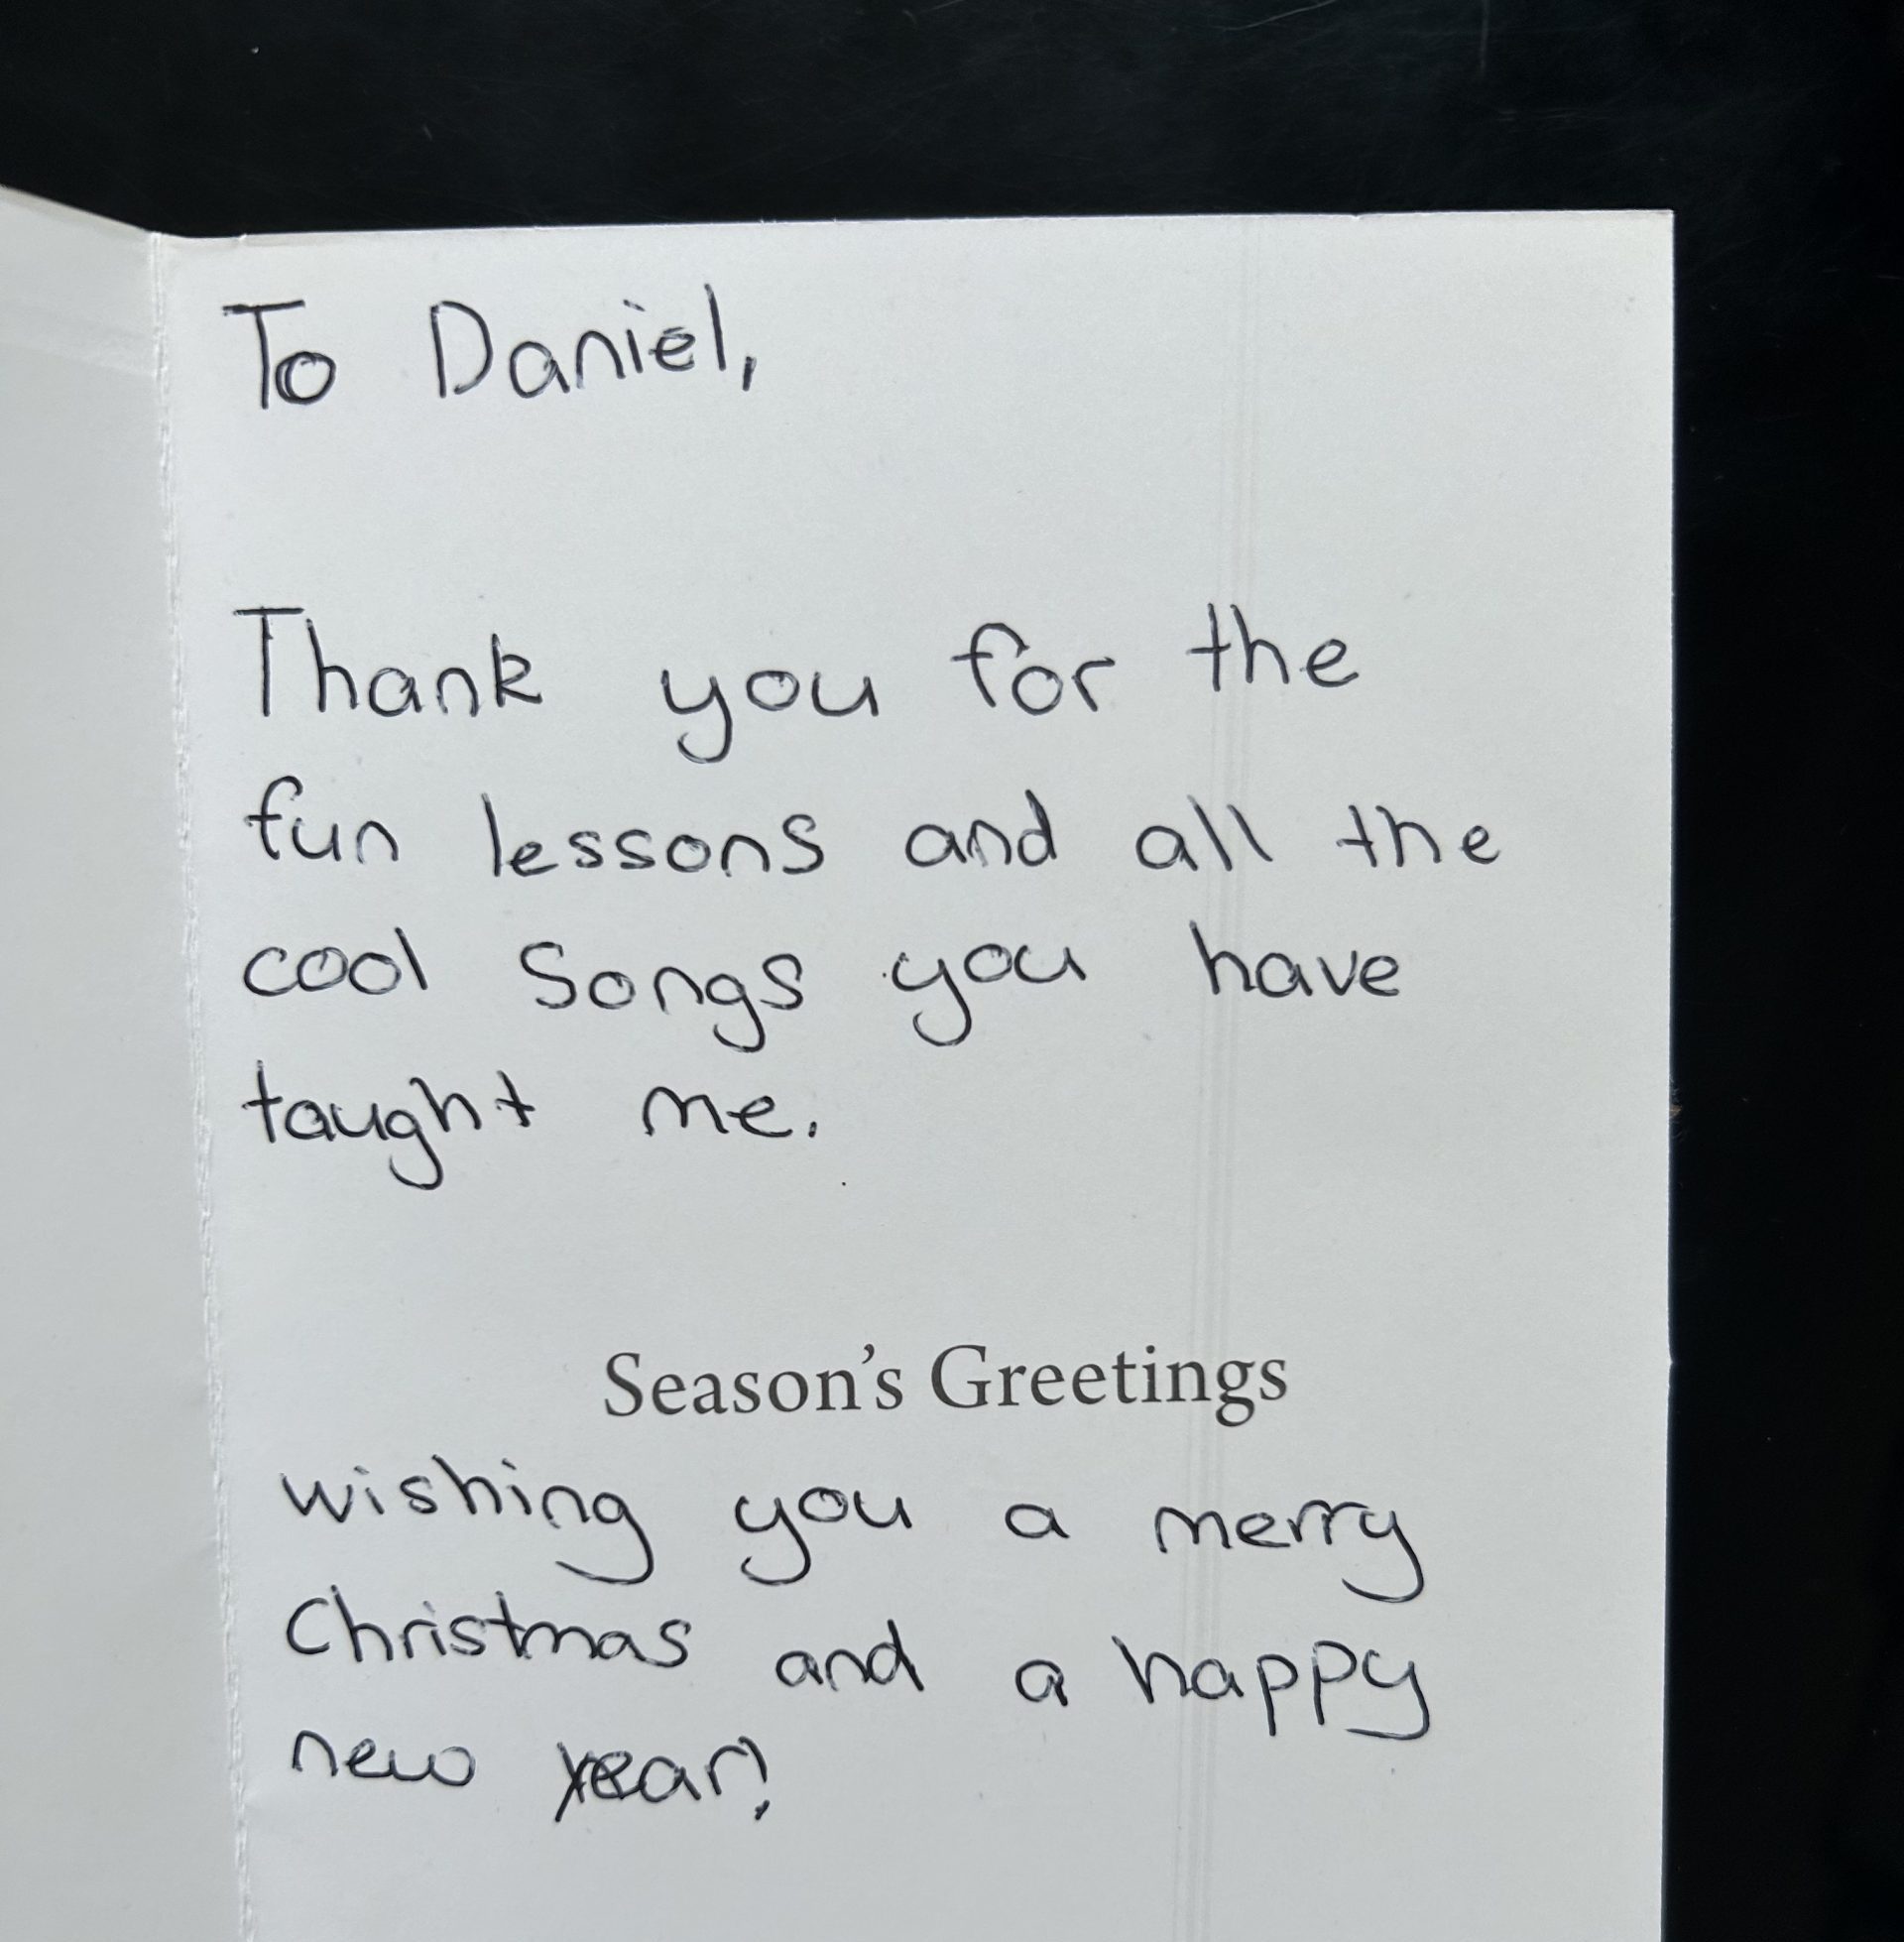 To Daniel,
Thank you for the
fun lessons and all the
cool Songs you have
taught me.
Season's Greetings
wishing you a merry
Christmas and a happy
new year!